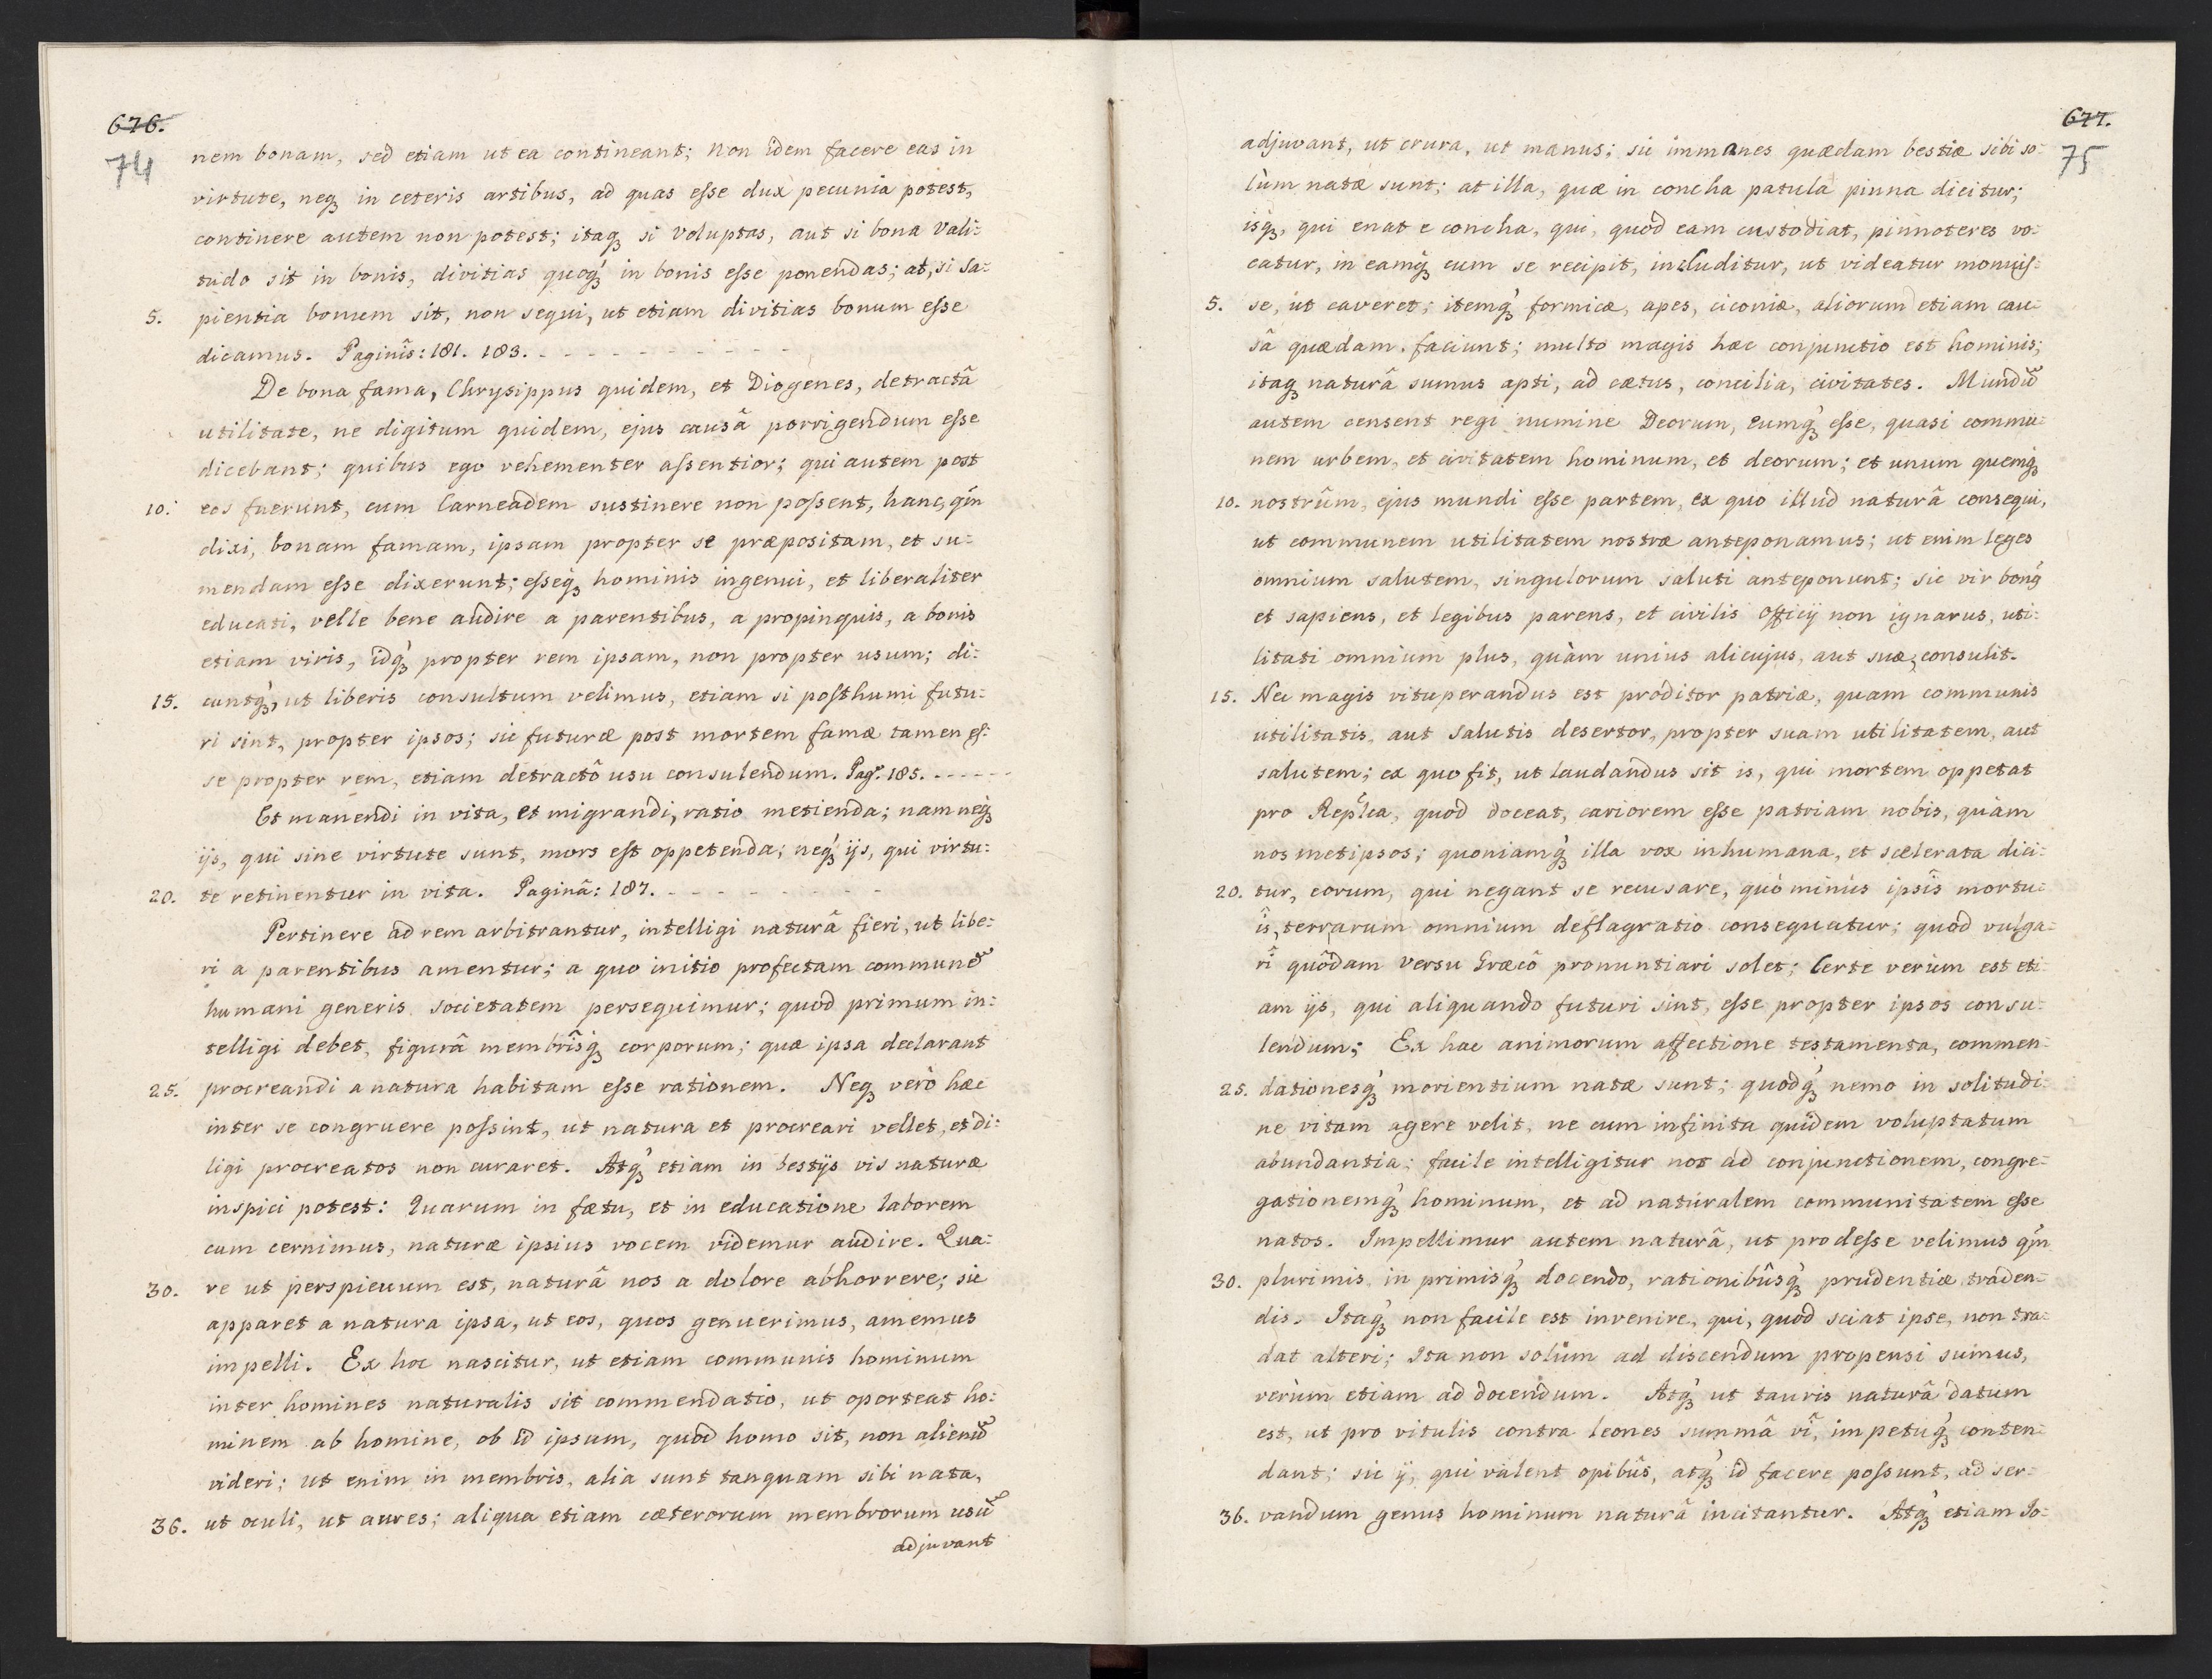 676.
74
nem bonam, sed etiam ut ea contineant; Non idem facere eas in
virtute, neq3 in ceteris artibus, ad quas esse dux pecunia potest,
continere autem non potest; itaq3 si Voluptas, aut si bona Vali:
tudo sit in bonis, divitias quoq3 in bonis esse ponendas; at, si Sa:
5. pientia bonum sit, non sequi, ut etiam divitias bonum esse
dicamus. Paginîs: 181. 183. - - - - - - - - - - -
De bona fama, Chrysippus quidem, et Diogenes, detractâ
utilitate, ne digitum quidem, ejus causâ porrigendum esse
dicebant; quibus ego vehementer assentior; qui autem post
10. eos fuerunt, cum Carneadem sustinere non possent, hanc, qm̃
dixi, bonam famam, ipsam propter se præpositam, et su:
mendam esse dixerunt; esseq3 hominis ingenui, et liberaliter
educati, velle bene audire a parentibus, a propinquis, a bonis
etiam viris, idq3 propter rem ipsam, non propter usum; di:
15. cuntq3, ut liberis consultum velimus, etiam si posthumi futu:
ri sint, propter ipsos; sic futuræ post mortem famæ tamen es:
se propter rem, etiam detractô usu consulendum. Pag. 185. - - - - -
Et manendi in vita, et migrandi, ratio metienda; nam neq3
ijs, qui sine virtute sunt, mors est oppetenda; neq3 ijs, qui virtu:
20. te retinentur in vita. Paginâ: 187. - - - - - - - -
Pertinere ad rem arbitrantur, intelligi naturâ fieri, ut libe:
ri a parentibus amentur; a quo initio profectam commune͂
humani generis societatem persequimur; quod primum in:
telligi debet, figurâ membrîsq3 corporum; quæ ipsa declarant
25. procreandi a natura habitam esse rationem. Neq3 verò hæc
inter se congruere possint, ut natura et procreari vellet, et di:
ligi procreatos non curaret. Atq3 etiam in bestijs vis naturæ
inspici potest: Quarum in fætu, et in educatione laborem
cum cernimus, naturæ ipsius vocem videmur audire. Qua:
30. re ut perspicuum est, naturâ nos a dolore abhorrere; sic
apparet a natura ipsa, ut eos, quos genuerimus, amemus
impelli. Ex hoc nascitur, ut etiam communis hominum
inter homines naturalis sit commendatio, ut oporteat ho:
minem ab homine, ob id ipsum, quod homo sit, non alienũ
videri; ut enim in membris, alia sunt tanquam sibi nata,
36. ut oculi, ut aures; aliqua etiam cæterorum membrorum usũ
adjuvant
677.
75
adjuvant, ut crura, ut manus; sic immanes quædam bestiæ sibi so:
lùm natæ sunt; at illa, quæ in concha patula pinna dicitur;
isq3, qui enat e concha, qui, quòd eam custodiat, pinnoteres vo:
catur, in eamq3 cum se recipit, includitur, ut videatur monuis:
5. se, ut caveret; itemq3 formicæ, apes, ciconiæ, aliorum etiam cau:
sâ quædam faciunt; multò magis hæc conjunctio est hominis;
itaq3 naturâ sumus apti, ad cætus, concilia, civitates. Mundũ
autem censent regi numine Deorum, eumq3 esse, quasi commu:
nem urbem, et civitatem hominum, et deorum; et unum quemq3
10. nostrûm, ejus mundi esse partem, ex quo illud naturâ consequi,
ut communem utilitatem nostræ anteponamus; ut enim leges
omnium salutem, singulorum saluti anteponunt; sic vir bong
et sapiens, et legibus parens, et civilis officij non ignarus, uti:
litati omnium plus, quàm unius alicujus, aut suæ, consulit.
15. Nec magis vituperandus est proditor patriæ, quam communis
utilitatis, aut Salutis desertor, propter suam utilitatem, aut
salutem; ex quo fit, ut laudandus sit is, qui mortem oppetat
pro Rep̃lca, quòd doceat, cariorem esse patriam nobis, quàm
nosmetipsos; quoniamq3 illa vox inhumana, et scelerata dici:
20. tur, eorum, qui negant se recusare, quò minùs ipsîs mortu:
îs, terrarum omnium deflagratio consequatur; quòd vulga:
rî quôdam versu Græcô pronuntiari solet; Certe verùm est eti:
am ijs, qui aliquando futuri sint, esse propter ipsos consu:
lendum; Ex hac animorum affectione testamenta, commen:
25. dationesq3 morientium natæ sunt; quodq3 nemo in solitudi:
ne vitam agere velit, ne cum infinita quidem voluptatum
abundantia; facile intelligitur nos ad conjunctionem, congre:
gationemq3 hominum, et ad naturalem communitatem esse
natos. Impellimur autem naturâ, ut prodesse velimus qm̃
30. plurimis, in primisq3 docendo, rationibûsq3 prudentiæ traden:
dis. Itaq3 non facile est invenire, qui, quod sciat ipse, non tra:
dat alteri; Ita non solùm ad discendum propensi sumus,
verùm etiam ad docendum. Atq3 ut tauris naturâ datum
est, ut pro vitulis contra leones summâ vî, impetuq3 conten:
dant; sic ij, qui valent opibûs, atq3 id facere possunt, ad ser:
36. vandum genus hominum naturâ incitantur. Atq3 etiam Jo: